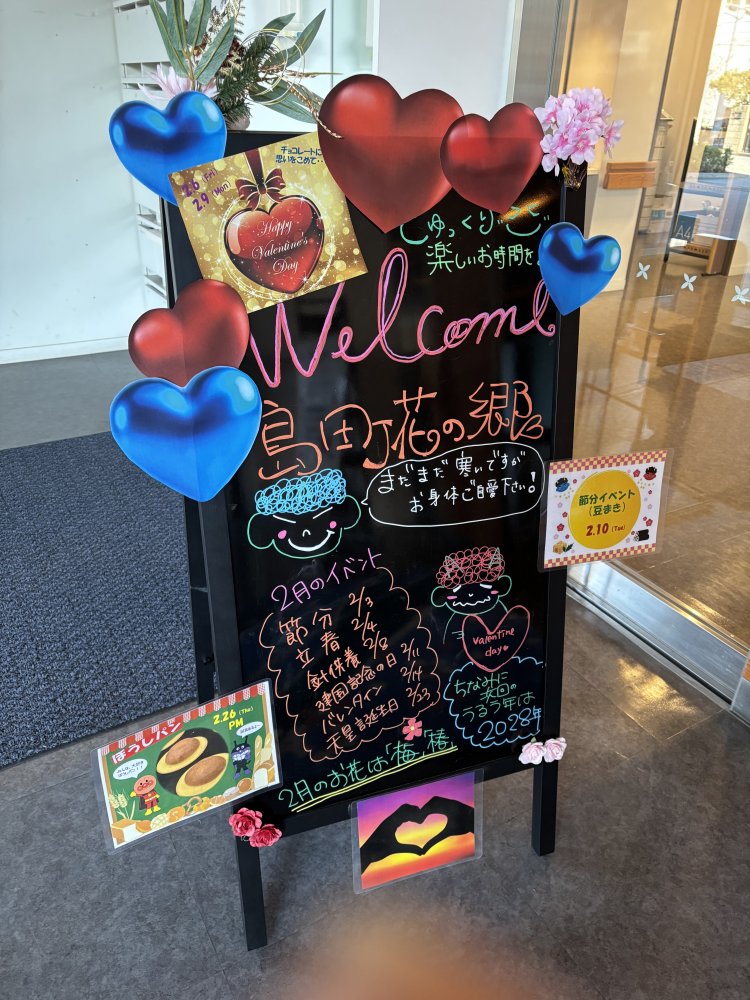 チョコレートに
思いをこめて・・
2.6 (Fri)
2.9 (Mon)
Happy
Valentine's
Day
楽しいお時間を
Welcome
島田町花の郷
まだまだ寒いですが
お身体ご自愛下さい!
節分イベント
(豆まき)
2.10 (Tue)
2月のイベント
節分 2/3
立春 2/4
針供養 2/8
建国記念の日 2/11
バレンタイン 2/14
天皇誕生日 2/23
Valentine
day
ちなみに
次回の
うるう年は
2028年
2月のお花は「梅」「椿」
2.26 (Thu)
PM
ぼうしパン